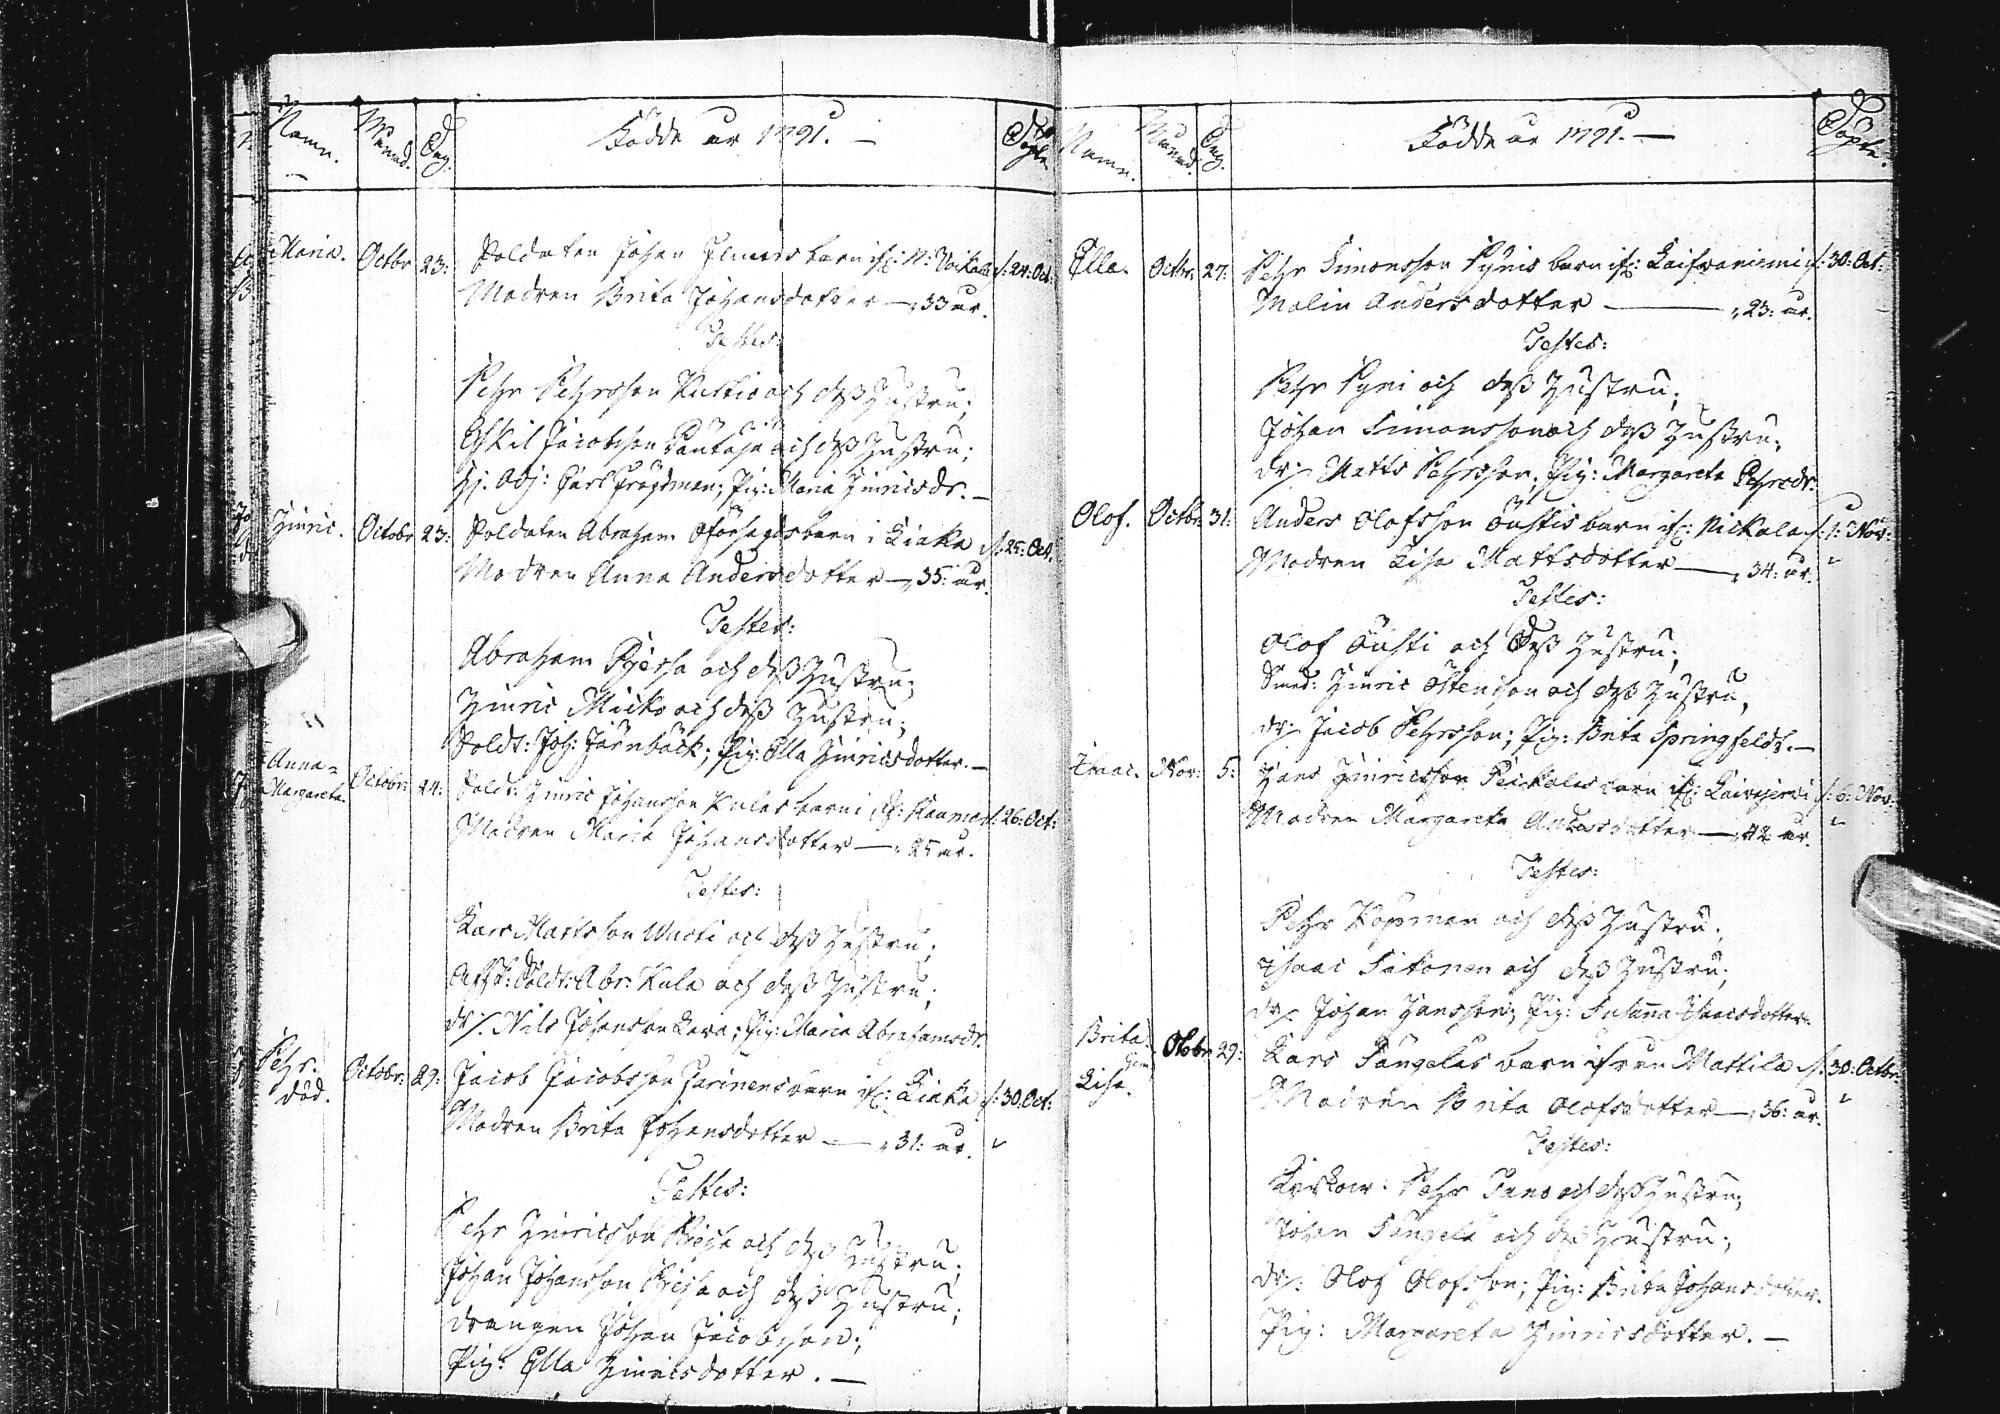 Namn. Månad. Dag. Födde år 1791. — Döpte
Maria. Octbr 23: Soldaten Johan Ilmers barn ifr: N: d: 24: Oct:
Modren Brita Johansdotter — 33 år.
Testes:
Pehr Pehrsson och dess Hustru;
Eskil Jacobsson Pantaja och dess Hustru;
Hj. Adj: Carl Frögdman; Pig: Maria Hinricsdr. —
Hinric. Octobr 23: Soldaten Abraham barn i Kiaka d: 25: Oct.
Modren Anna Andersdotter — 35: år.
Testes:
Abraham och dess Hustru;
Hinric Micko och dess Hustru;
Soldt: Joh: Järnbäck; Pig: Ella Hinricsdotter. —
Anna=
Margareta. Octobr: 24: Soldt: Hinric Johansson Kulas barn i Naumo d: 26: Oct:
Modren Maria Johansdotter — 25 år.
Testes:
Lars Mattsson och dess Hustru;
Afsk: Soldt: Abr: Kula och dess Hustru;
dr: Nils Johansson Lava; Pig: Maria Abrahamsdr.
Pehr.
död. Octobr: 29: Jacob Jacobsson barn ifr: Kiaka d: 30. Oct:
Modren Brita Johansdotter — 31: år.
Testes:
Pehr Hinricsson och dess Hustru;
Johan Johansson och dess Hustru;
drengen Johan Jacobsson;
Pig: Ella Hinricsdotter. —
Namn. Månad. Dag. Födde år 1791. — Döpte.
Ella. Octbr: 27: Pehr Simonsson Pynis barn ifr: d: 30: Oct:
Malin Andersdotter — 23: år.
Testes:
Pehr Pyni och dess Hustru;
Johan Simonsson och dess Hustru;
dr: Matts Pehrsson; Pig: Margareta Pehrsdr.
Olof. Octbr: 31: Anders Olofsson barn ifr: Nickala d: 1: Nov:
Modren Lisa Mattsdotter — 34: år.
Testes:
Olof och Dess Hustru;
Smed: Hinric Östensson och dess Hustru,
dr: Jacob Pehrsson; Pig: Brita Springfeldt. —
Isaac. Nov: 5: Hans Hinricsson barn ifr: Kaivajervi d: 6: Nov:
Modren Margareta Andersdotter — 42 år.
Testes:
Pehr Kopman och dess Hustru;
Isaac och dess Hustru;
dr: Johan Hansson; Pig: Susanna Isaacsdotter.
Brita
Lisa. Octobr 29: Lars Tangelas barn ifrån Mattila d: 30: Octbr:
Modren Brita Olofsdotter — 36: år.
Testes:
Kyrkow: Pehr Tano och dess Hustru;
Johan Tangela och dess Hustru;
dr: Olof Olofsson; Pig: Brita Johansdotter.
Pig: Margareta Hinricsdotter. —